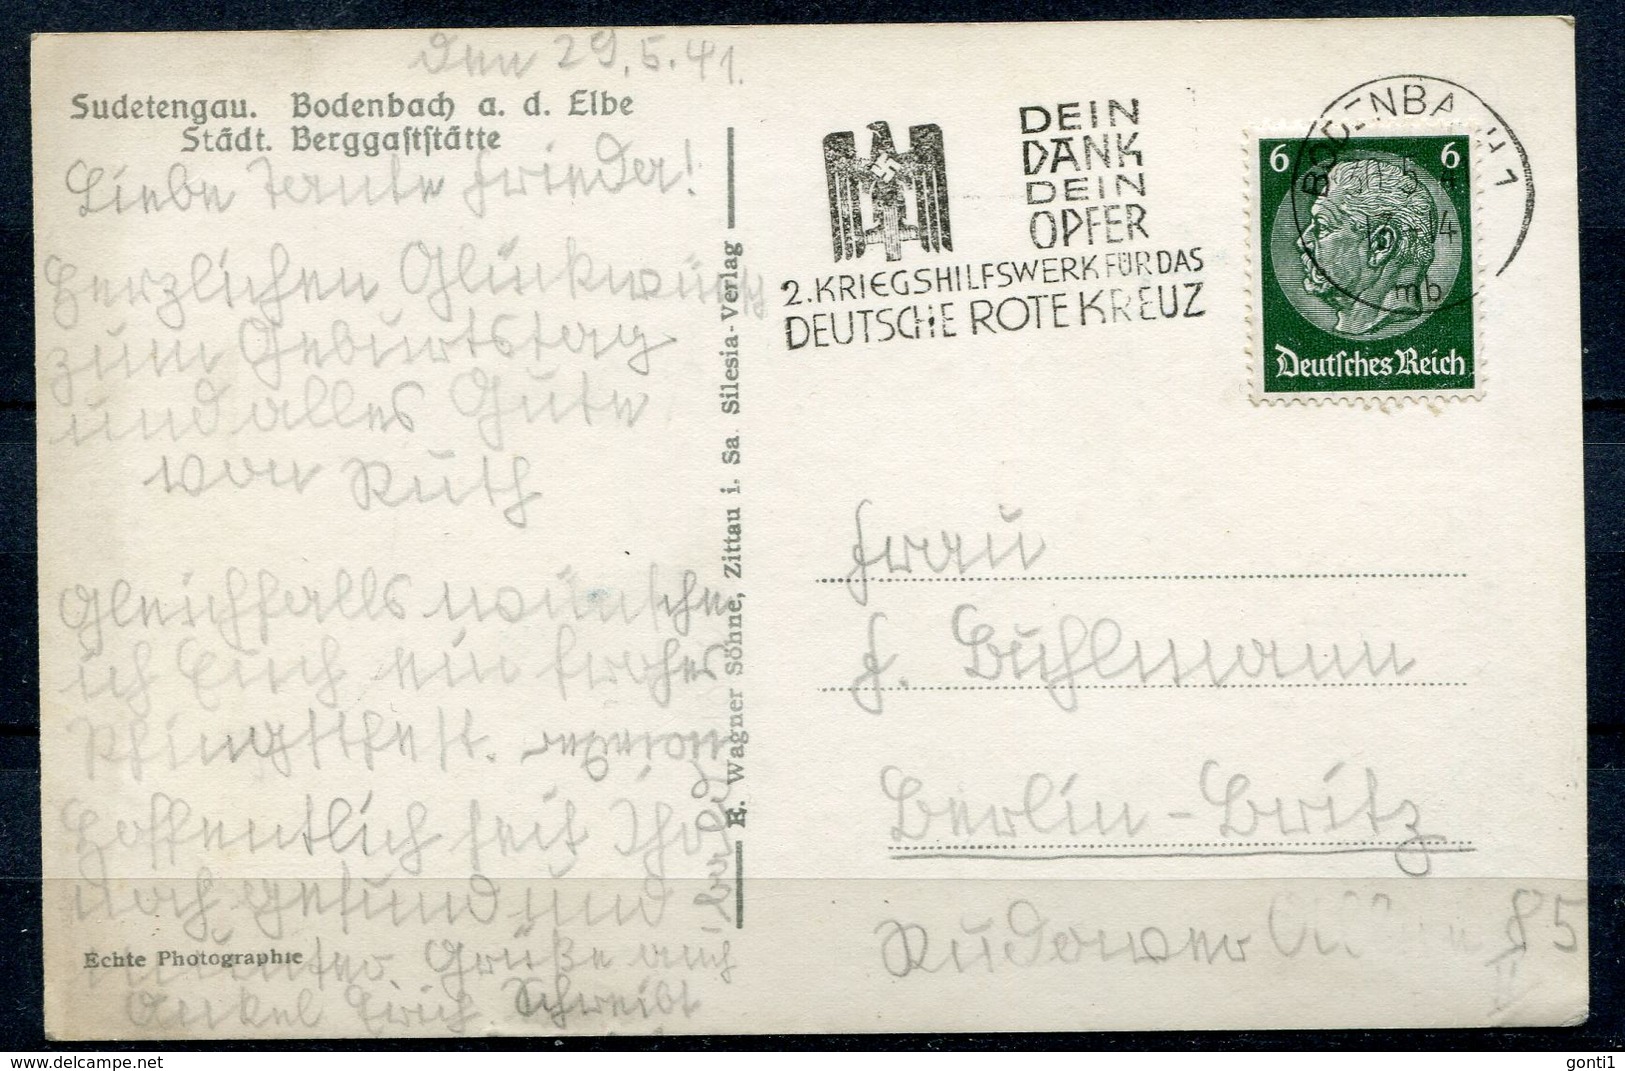 den 29.5.41.
Sudetengau. Bodenbach a. d. Elbe
Städt. Berggaststätte
Liebe Tante Frieda!
Herzlichen Glückwunsch
zum Geburtstag
und alles Gute
von Ruth
Gleichfalls wünsche
ich Euch ein frohes
Pfingstfest.
Hoffentlich seit Ihr
noch gesund und
munter. Grüße auch
Onkel Erich. Schreibt
bald
Echte Photographie
E. Wagner Söhne, Zittau i. Sa. Silesia-Verlag
DEIN
DANK
DEIN
OPFER
2. KRIEGSHILFSWERK FÜR DAS
DEUTSCHE ROTE KREUZ
BODENBACH 1
13-14
mb
6 6
Deutsches Reich
Frau
F. Buhlmann
Berlin-Britz
Rudower 85
gonti1